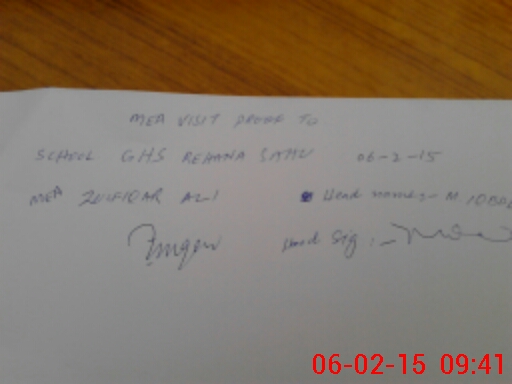 MEA VISIT PROOF TO
SCHOOL GHS REHANA SAHU 06-2-15
MEA ZULFIQAR ALI Head name:- M. IQBAL
Head Sig:-
06-02-15 09:41